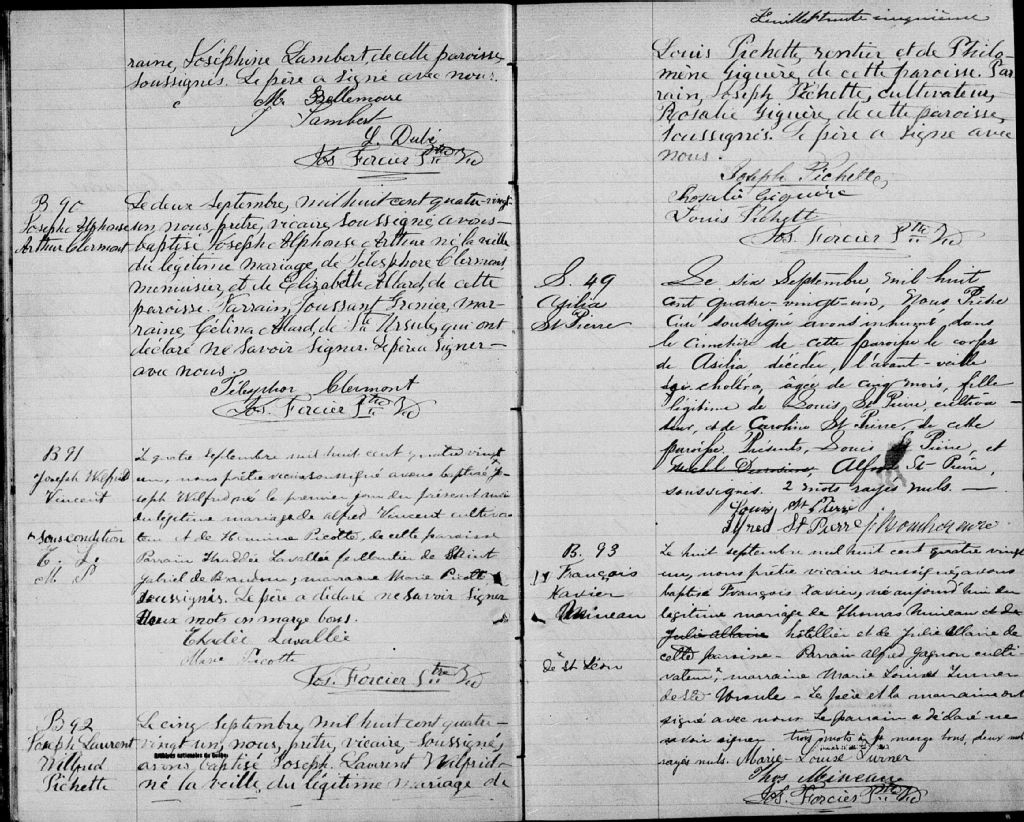 raine, Joséphine Lambert, de cette paroisse,
soussignés. Le père a signé avec nous.
M. Bellemare
J Lambert
L. Dubé
Jos. Forcier Ptre Vic
B 90
Joseph Alphonse
Arthur Clermont
Le deux Septembre, mil huit cent quatre-vingt-
un, nous, prêtre, vicaire, soussigné avons
baptisé Joseph Alphonse Arthur né la veille
du légitime mariage de Télesphore Clermont
menuisier et de Elizabeth Allard, de cette
paroisse. Parrain, Toussant Grenier, mar-
raine, Gélina Allard, de Ste Ursule, qui ont
déclaré ne savoir signer. Le père a signer
avec nous.
Télesphor Clermont
Jos. Forcier Ptre Vic
B 91
Joseph Wilfrid
Vincent
+ sous condition
T. L.
M. P
Le quatre septembre mil huit cent quatre vingt
un, nous prêtre vicaire soussigné avons baptisé Jo-
seph Wilfrid né le premier jour du présent mois
du légitime mariage de Alfred Vincent cultiva-
teur et de Hermine Picotte, de cette paroisse
Parrain Thaddée Lavallée de Saint
Gabriel de Brandon, marraine Marie Picotte
soussignés. Le père a déclaré ne savoir signer
Deux mots en marge bons.
Thadée Lavallée
Marie Picotte
Jos. Forcier Ptre Vic
B 92
Joseph Laurent
Wilfrid
Pichette
Le cinq Septembre, mil huit cent quatre-
vingt un, nous, prêtre, vicaire, soussigné,
Archives nationales du Québec
avons baptisé Joseph Laurent Wilfrid
né la veille, du légitime mariage de
Feuillet trente cinquième
Louis Pichette, rentier et de Philo-
mène Giguère, de cette paroisse. Par-
rain, Joseph Pichette, cultivateur,
Rosalie Giguère, de cette paroisse,
soussignés. Le père a signé avec
nous.
Joseph Pichette,
Rosalie Giguère
Louis Pichett
Jos. Forcier Ptre Vic
S. 49
Asilia
St Pierre
Le six Septembre mil huit
cent quatre-vingt-un, Nous Prêtre
Curé soussigné avons inhumé dans
le cimetière de cette paroisse le corps
de Asilia décédée, l'avant-veille
choléra, âgée de cinq mois, fille
légitime de Louis St Pierre, cultiva-
teur, et de Caroline St Pierre, de cette
paroisse. Présents, Louis St Pierre, et
Alfred St-Pierre,
soussignés. 2 mots rayés nuls. —
Louis St Pierre
Alfred St Pierre
B. 93
François
Xavier
Mineau
de St Léon
Le huit septembre mil huit cent quatre vingt
un, nous prêtre vicaire soussigné avons
baptisé François Xavier, né aujourd'hui du
légitime mariage de Thomas Mineau et de
Julie Allaire hôtellier et de Julie Allaire de
cette paroisse - Parrain Alfred Gagnon culti-
vateur, marraine Marie Louise Turner
de Ste Ursule - Le père et la marraine ont
signé avec nous Le parrain a déclaré ne
savoir signer trois mots en marge bons, deux mots
rayés nuls. Marie-Louise Turner
Thos Mineau
Jos. Forcier Ptre Vic